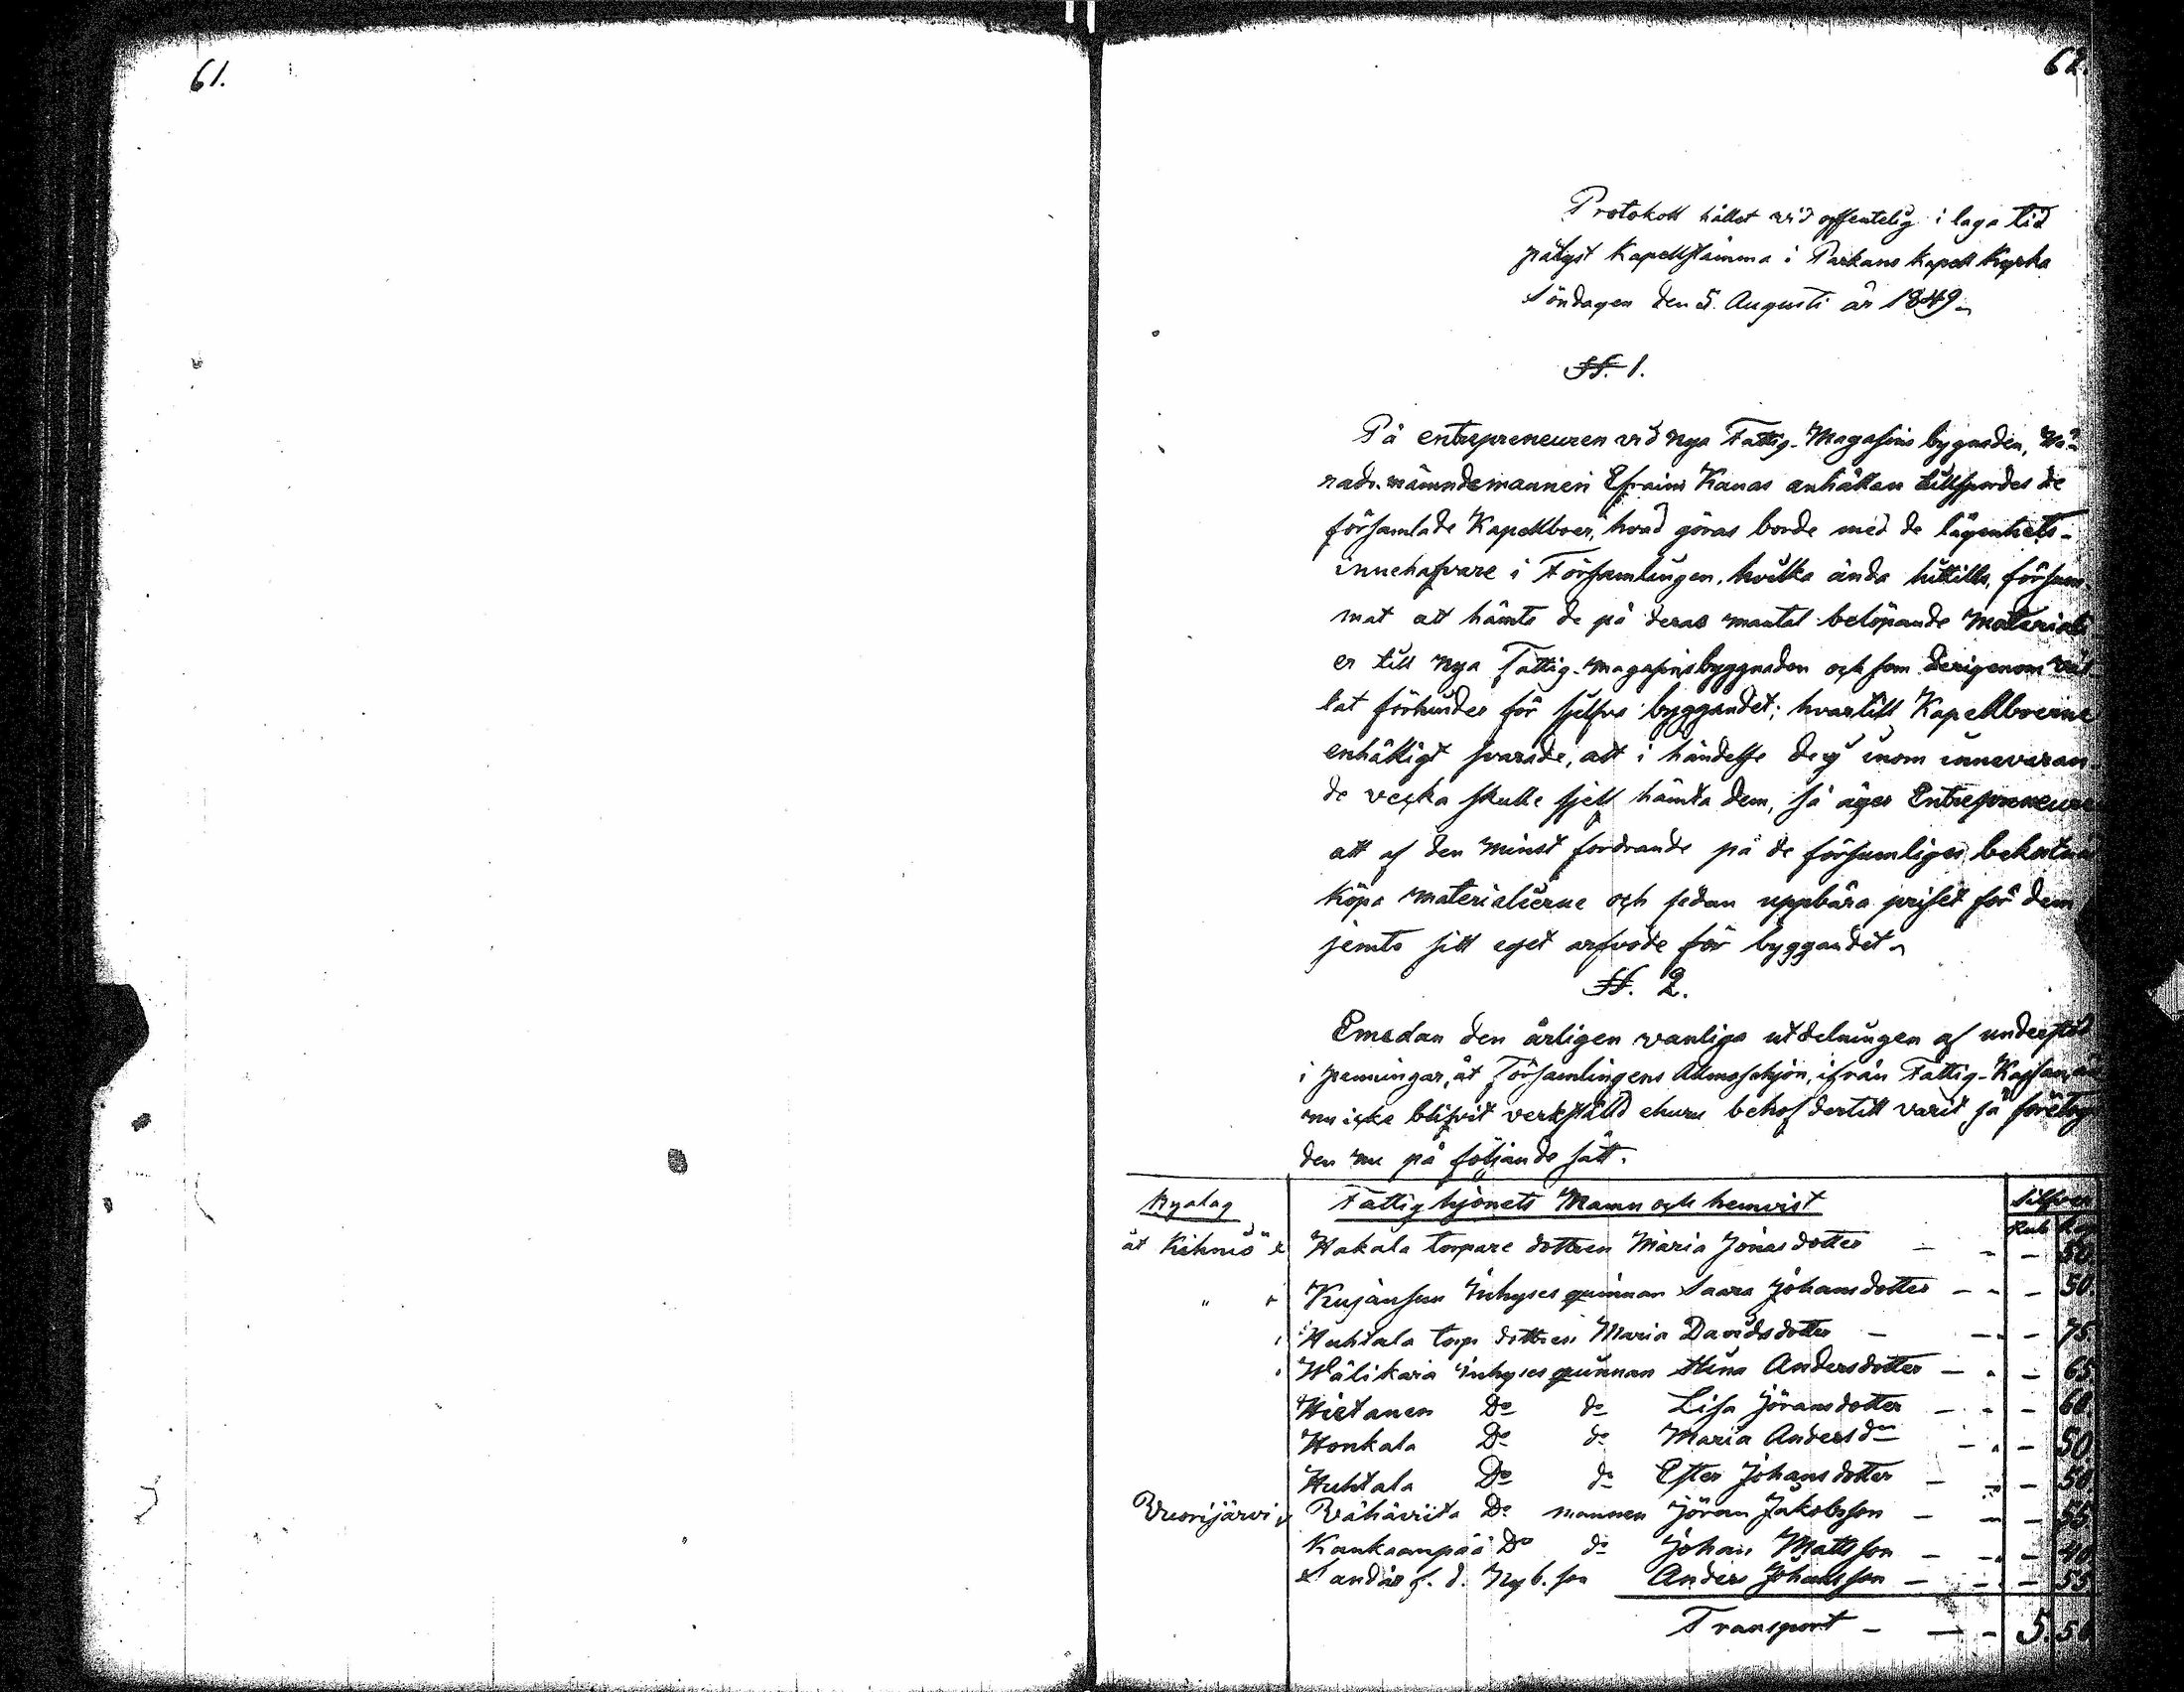 61.
62.
Protokoll hållet vid offentelig i laga tid
pålyst Kapellstämma i Parkano Kapell Kyrka
Söndagen den 5. Augusti år 1849.
§§. 1.
På entrepreneuren vid nya Fattig-Magasins bygnaden,
nads. nämndemannen Efraim Kanas anhållan tillspordes de
församlade Kapellboer, hvad göras borde med de lägenhets-
innehafvare i Församlingen, hvilka ända hittills, försum-
mat att hämta de på deras mantal belöpande Materiali
er till nya Fattig-magasinsbyggnaden och som derigenom vål
lat förhinder för sjelfva byggandet; hvartill Kapellboerne
enhälligt svarade, att i händelse de ej inom innevaran-
de vecka skulle sjelf hämta dem, så äger Entrepreneure
att af den minst fordrande på de försumliges bekostna
köpa materialierne och sedan uppbära priset för dem
jemte sitt eget arfvode för byggandet.
§§. 2.
Emedan den årligen vanliga utdelningen af understöd
i penningar, åt Församlingens Allmosehjon, ifrån Fattig-Kassan, än
nu icke blifvit verkställd ehuru behof dertill varit så företog
den nu på följande sätt.
Byalag Fattighjonets Namn och hemvist Silfver
Rub Kop
åt Kihniö Hakala torpare dottren Maria Jonasdotter - - - 50.
" Kujansun Inhyses qvinnan Saara Johansdotter - - - 50.
Huhtala torp dottren Maria Davidsdotter - - - 75.
Wälikariä Inhyses qvinnan Stina Andersdotter - - - 65
Hietanen Do do Lisa Jöransdotter - - - 60.
Honkala Do do Maria Anders dr - - - 50.
Huhtala Do do Ester Johansdotter - - - 50.
Vuorijärvi Vähäviita Do mannen Jöran Jakobsson - - - 55.
Kankaanpää Do do Johan Mattsson - - - 40.
Sandår f. d. Nyb. son Anders Johansson - - - 55.
Transport - - - 5. 50